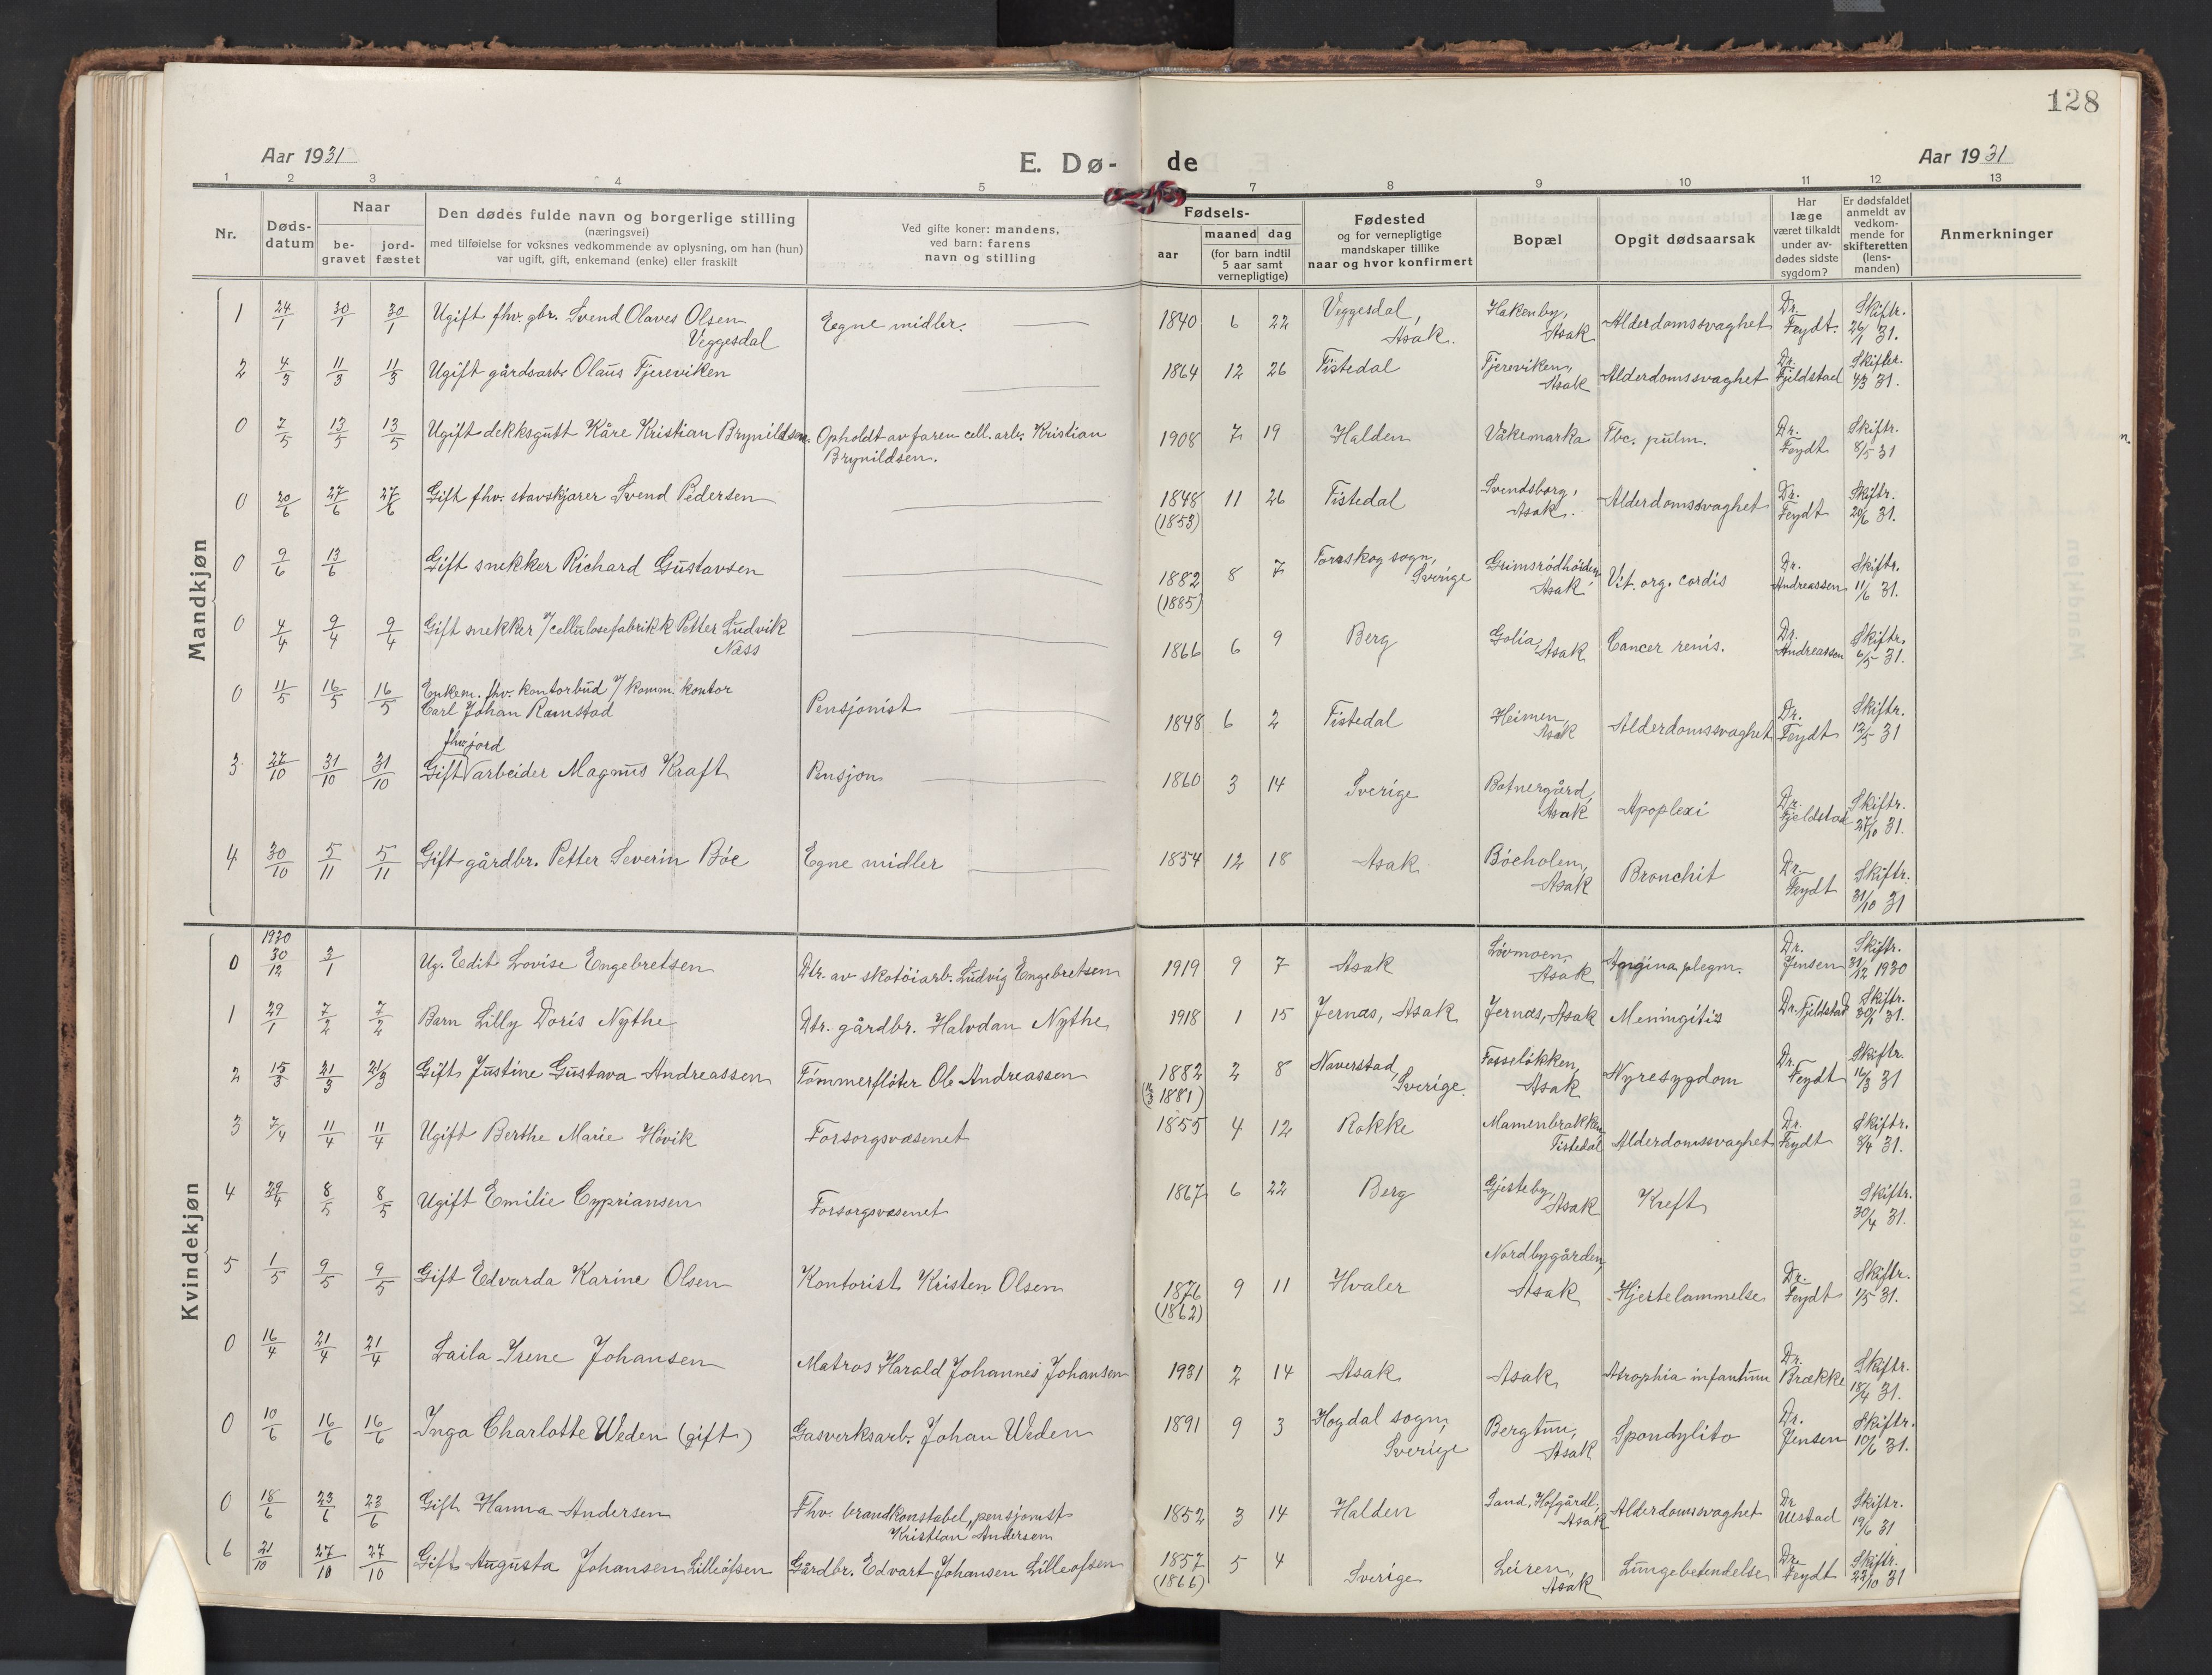 128
Aar 1931
E. Dø-
de
Aar 1931
1 2 3 4 5 7 8 9 10 11 12 13
Nr.
Døds-
datum
Naar
be-
gravet
jord-
fæstet
Den dødes fulde navn og borgerlige stilling
(næringsvei)
med tilføielse for voksnes vedkommende av oplysning, om han (hun)
var ugift, gift, enkemand (enke) eller fraskilt
Ved gifte koner: mandens,
ved barn: farens
navn og stilling
Fødsels-
aar
maaned dag
(for barn indtil
5 aar samt
vernepligtige)
Fødested
og for vernepligtige
mandskaper tillike
naar og hvor konfirmert
Bopæl
Opgit dødsaarsak
Har
læge
været tilkaldt
under av-
dødes sidste
sygdom?
Er dødsfaldet
anmeldt av
vedkom-
mende for
skifteretten
(lens-
manden)
Anmerkninger
Mandkjøn
1 24/1 30/1 30/1 Ugift fhv. gbr. Svend Olaves Olsen
Veggesdal
Egne midler. 1840 6 22 Veggesdal,
Asak. Hakenby,
Asak Alderdomssvaghet Dr.
Feydt. Skiftr.
26/1 31.
2 4/3 11/3 11/3 Ugift gårdsarb. Olaus Tjereviken 1864 12 26 Tistedal Tjereviken,
Asak Alderdomssvaghet Dr.
Fjeldstad Skifter.
4/3 31.
0 7/5 13/5 13/5 Ugift dekksgutt Kåre Kristian Brynildsen. Opholdt av faren cell. arb. Kristian
Brynildsen. 1908 7 19 Halden Våkemarka Tbc. pulm. Dr.
Feydt Skiftr.
8/5 31
0 20/6 27/6 27/6 Gift fhv. stavskjærer Svend Pedersen 1848
(1853) 11 26 Tistedal Svendsborg,
Asak. Alderdomssvaghet Dr.
Feydt Skiftr.
20/6 31.
0 9/6 13/6 Gift snekker Richard Gustavsen 1882
(1885) 8 7 Torrskog sogn,
Sverige Grimsrödhöiden
Asak Vit. org. cordis Dr.
Andreassen Skiftr.
11/6 31.
0 4/4 9/4 9/4 Gift snekker v/ cellulosefabrikk Petter Ludvik
Næss 1866 6 9 Berg Golia,
Asak Cancer renis. Dr.
Andreassen Skiftr.
6/5 31.
0 11/5 16/5 16/5 Enkem. fhv. kontorbud v/ komm. kontor
Carl Johan Ramstad Pensjonist 1848 6 2 Tistedal Heimen,
Asak Alderdomssvaghet Dr.
Feydt Skiftr.
12/5 31
3 26/10 31/10 31/10 fhv. jord
Gift arbeider Magnus Kraft Pensjon 1860 3 14 Sverige Botnergård,
Asak Apoplexi Dr.
Fjeldstad Skiftr.
27/10 31.
4 30/10 5/11 5/11 Gift gårdbr. Petter Severin Böe Egne midler 1854 12 18 Asak Böeholen,
Asak Bronchit Dr.
Feydt Skiftr.
31/10 31
Kvindekjøn
0 1930
30/12 3/1 Ug. Edit Lovise Engebretsen Dtr. av skotöiarb. Ludvig Engebretsen 1919 9 7 Asak Lövmoen,
Asak Angina plegm. Dr.
Jensen Skiftr.
31/12 1930
1 29/1 7/2 7/2 Barn Lilly Doris Nythe Dtr. gårdbr. Halvdan Nythe 1918 1 15 Jernæs, Asak Jernæs, Asak Meningitis Dr. Fjeldstad Skiftr.
30/1 31.
2 15/3 21/3 21/3 Gift Justine Gustava Andreassen Tömmerflöter Ole Andreassen 1882
(1881) 2 8 Naverstad,
Sverige. Fosselökken,
Asak Nyresygdom Dr.
Feydt Skiftr.
16/3 31
3 7/4 11/4 11/4 Ugift Berthe Marie Hövik Forsorgsvæsenet 1855 4 12 Rokke Mamenbrakken
Tistedal Alderdomssvaghet Dr.
Feydt Skiftr.
8/4 31.
4 29/4 8/5 8/5 Ugift Emilie Cypriansen Forsorgsvæsenet 1867 6 22 Berg Gjesteby,
Asak Kreft Skiftr.
30/4 31.
5 1/5 9/5 9/5 Gift Edvarda Karine Olsen Kontorist Kristen Olsen 1876
(1862) 9 11 Hvaler Nordbygården,
Asak Hjertelammelse Dr.
Feydt Skiftr.
1/5 31.
0 16/4 21/4 21/4 Laila Irene Johansen Matros Harald Johannes Johansen 1931 2 14 Asak Asak Atrophia infantum Dr.
Brække Skiftr.
18/4 31.
0 10/6 16/6 16/6 Inga Charlotte Weden (gift) Gasverksarb. Johan Weden 1891 9 3 Hogdal sogn,
Sverige Bergtun,
Asak Spondylito Dr.
Jensen Skiftr.
10/6 31.
0 18/6 23/6 23/6 Gift Hanna Andersen Fhv. brandkonstabel, pensjonist
Kristian Andersen 1852 3 14 Halden Sand, Hofgårdl.
Asak Alderdomssvaghet Dr
Ulstad Skiftr.
19/6 31
6 21/10 27/10 27/10 Gift Augusta Johansen Lilleöfsen Gårdbr. Edvart Johansen Lilleöfsen 1857
(1866) 5 4 Sverige Leiren,
Asak Lungebetendelse Dr.
Feydt Skiftr.
22/10 31